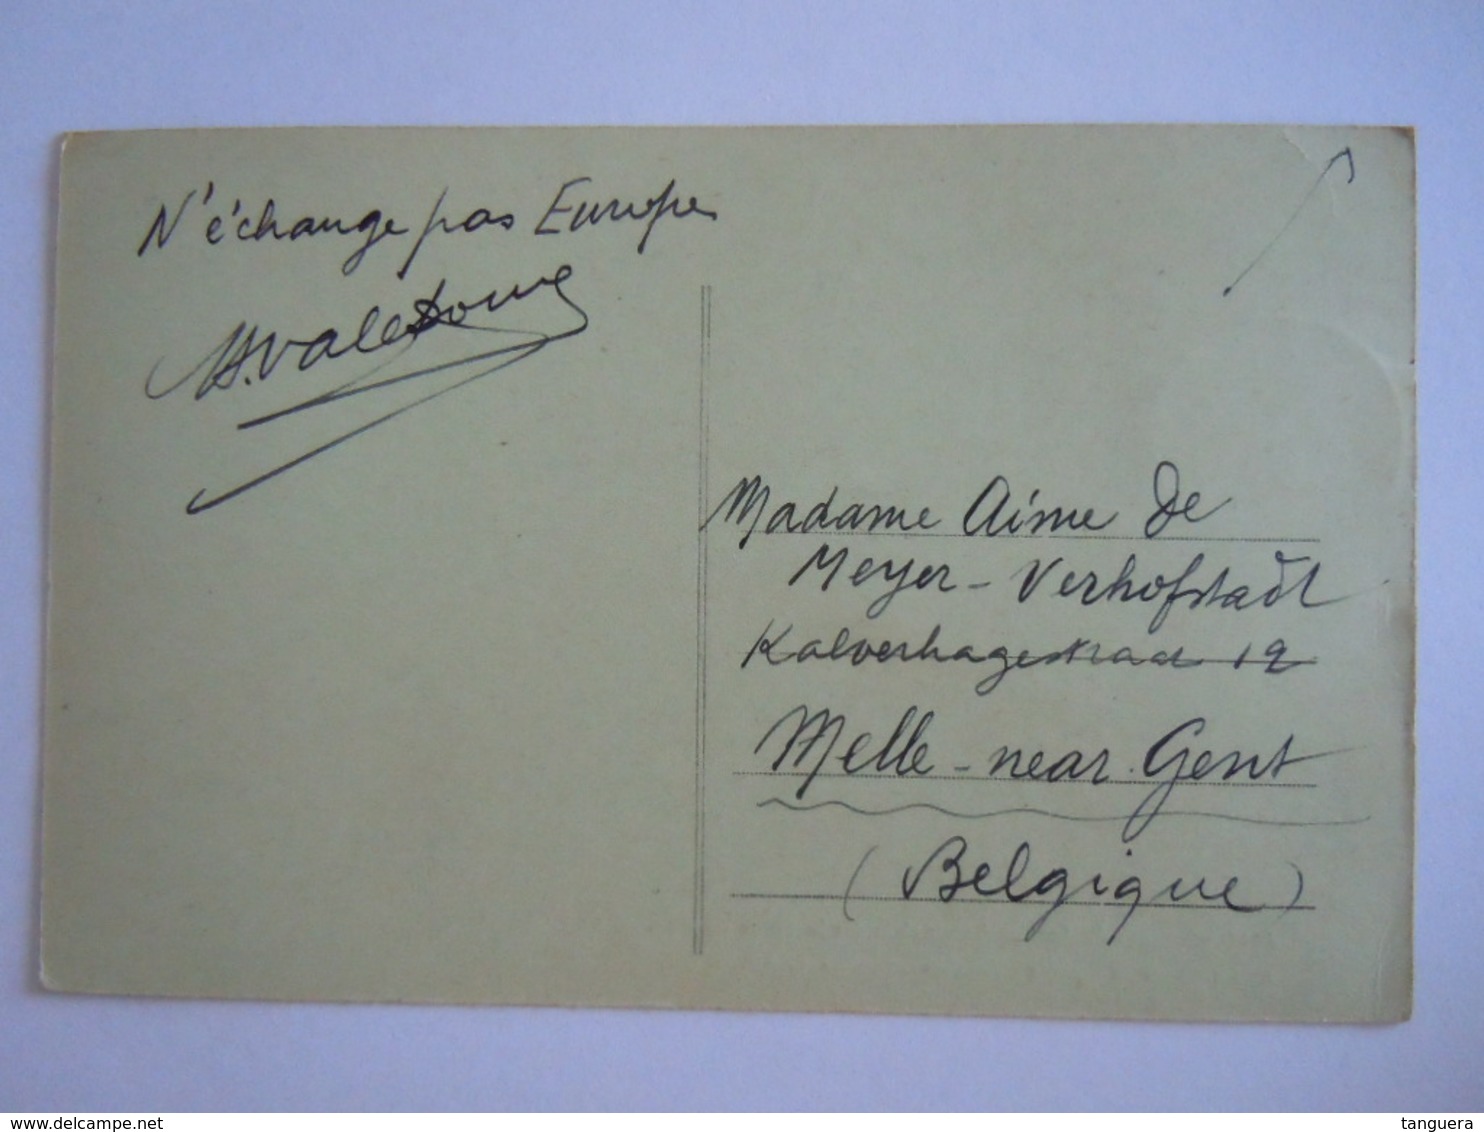 N'échange pas Europe
Madame Aime de
Meyer - Verhofstadt
Kalverhagestraat 12
Melle - near Gent
(Belgique)
www.delcampe.net
tanguera